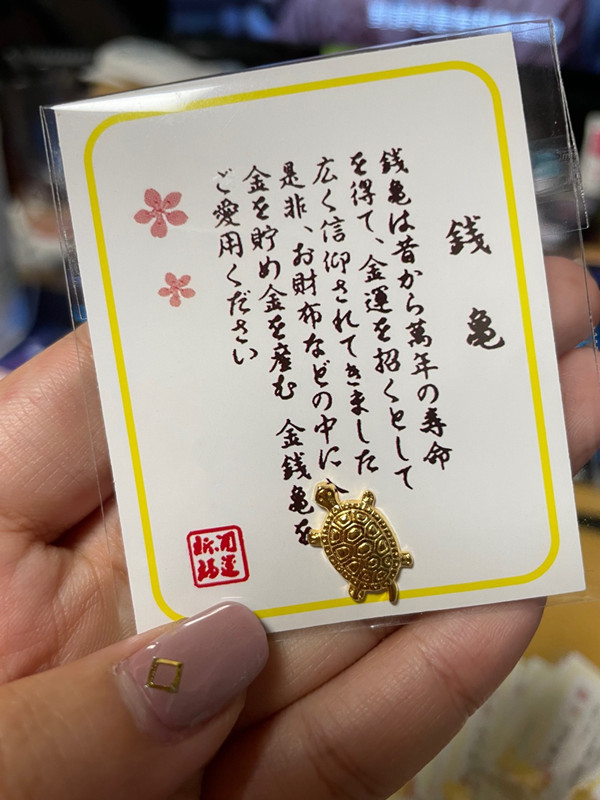 銭亀
銭亀は昔から萬年の寿命
を得て、金運を招くとして
広く信仰されてきました
是非、お財布などの中に
金を貯め金を産む 金銭亀を
ご愛用ください
開運